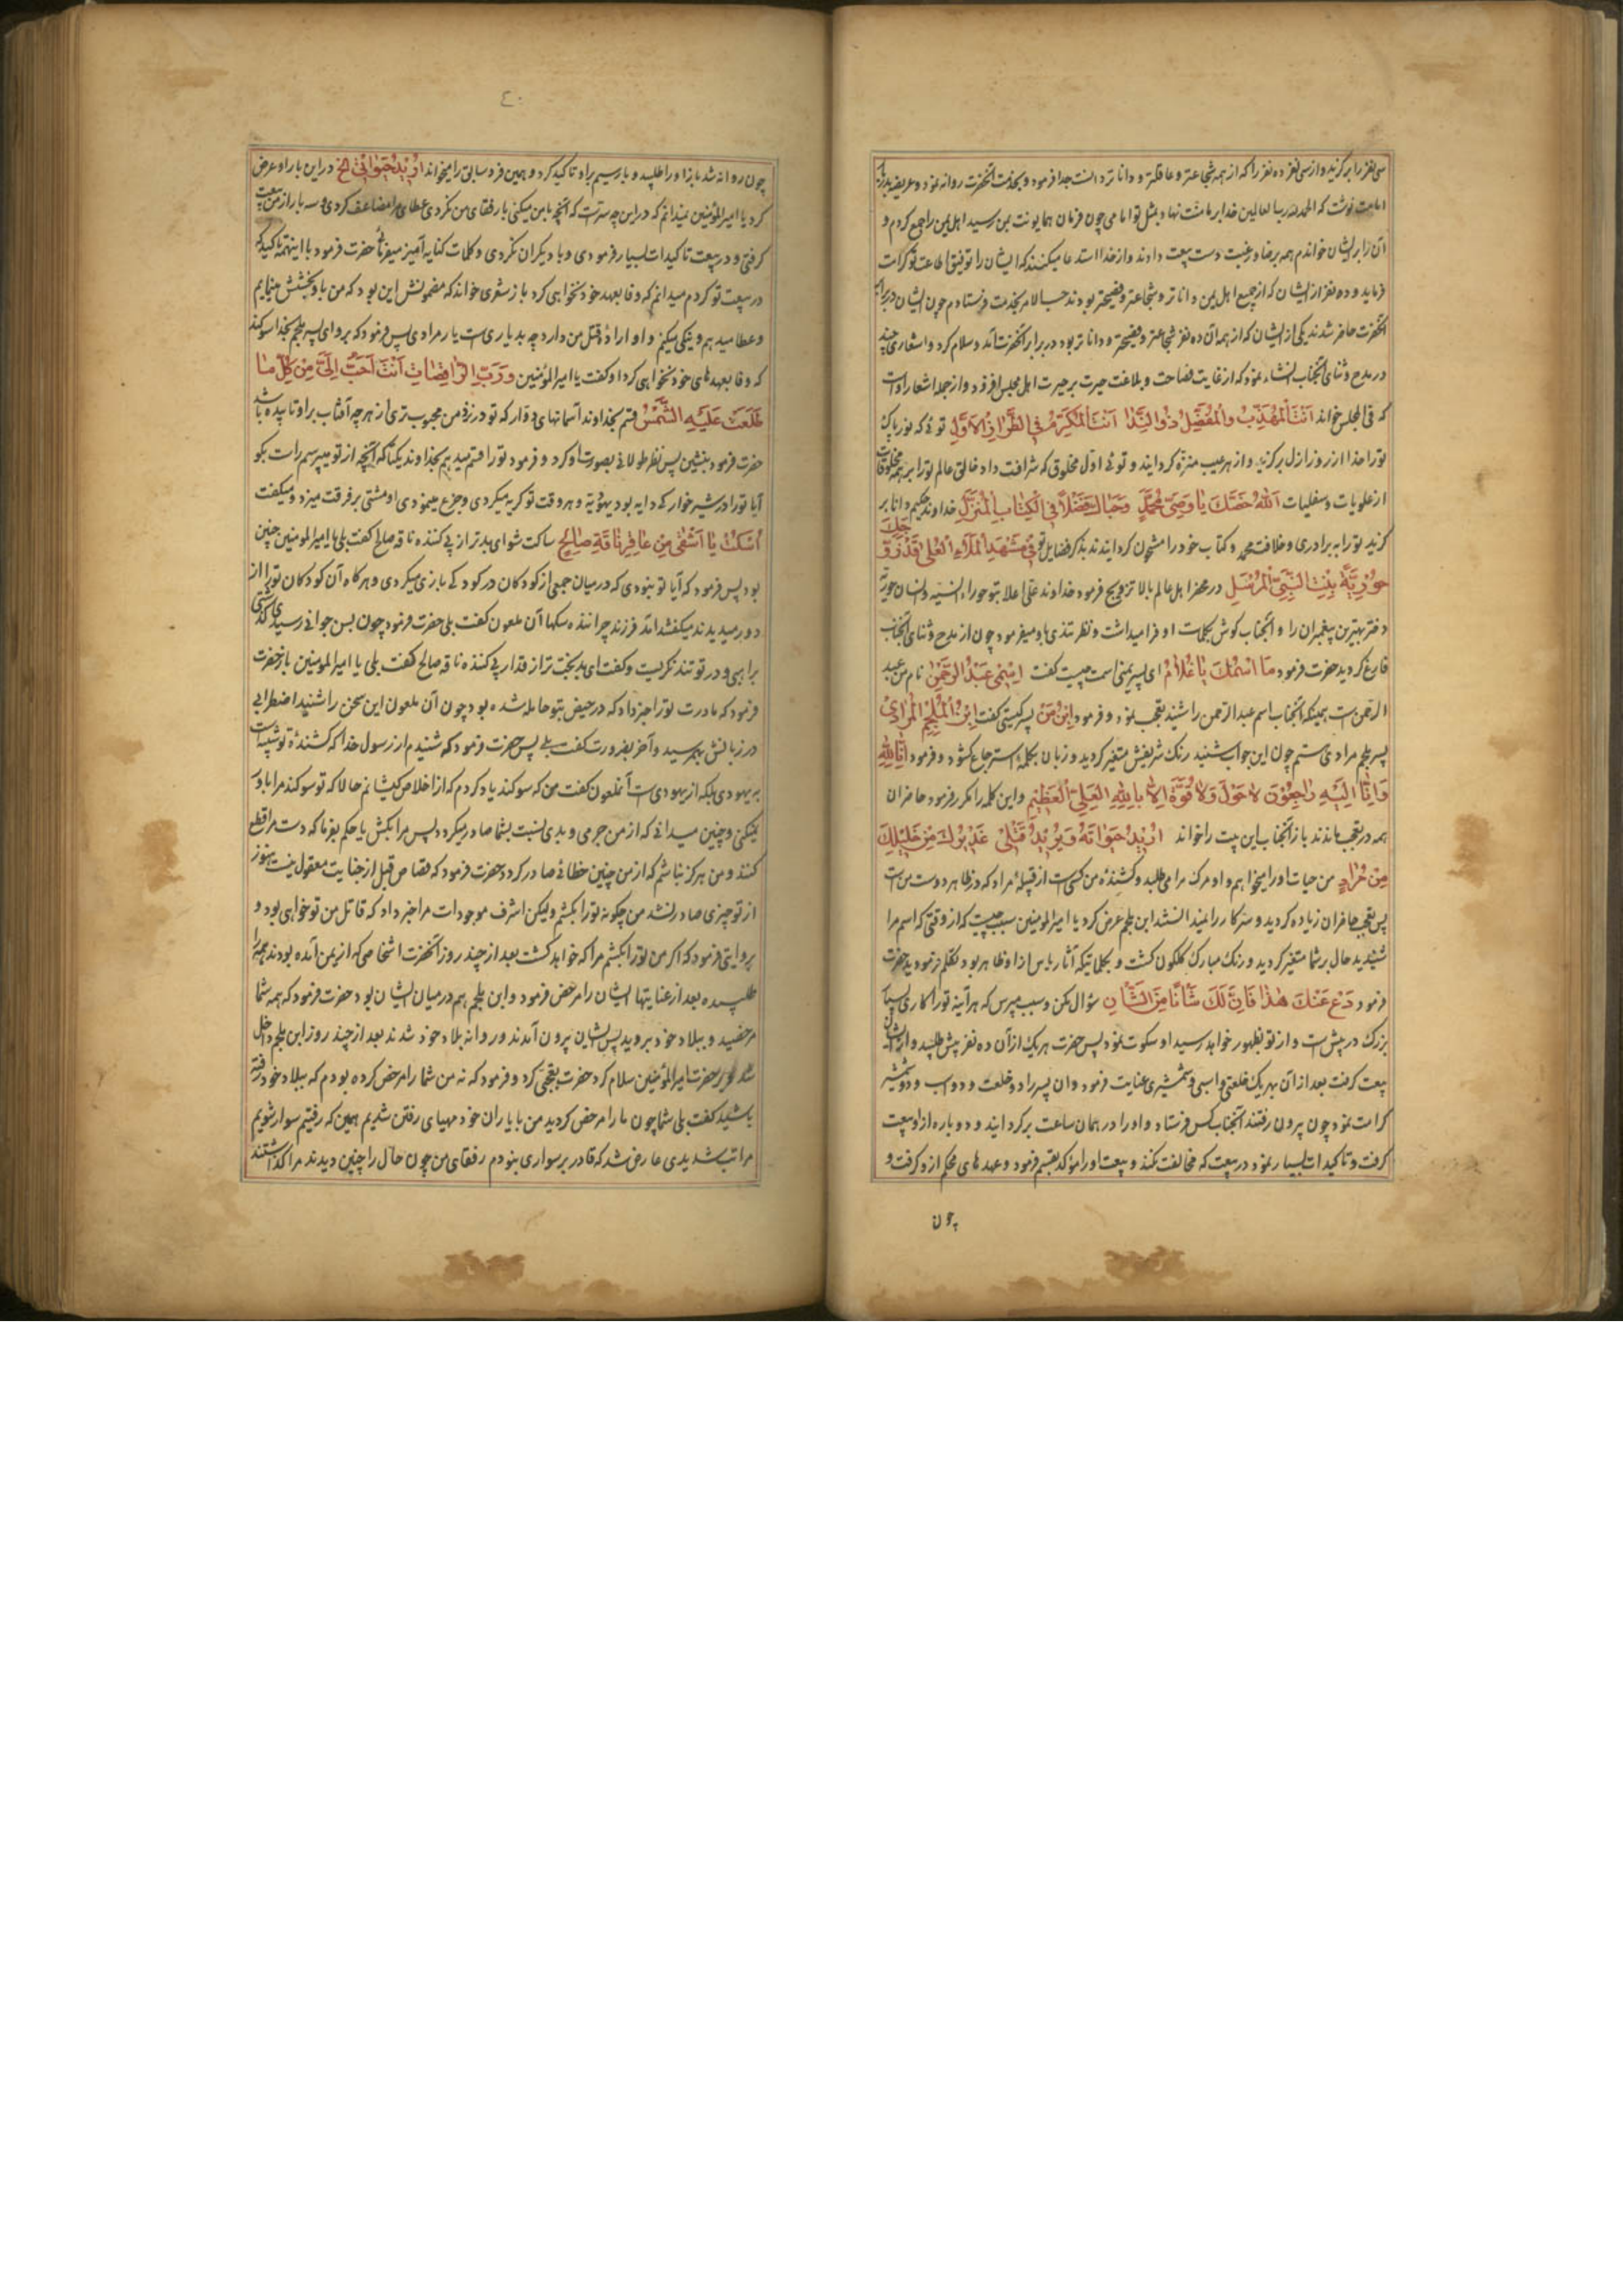 سی نفر را برگزید و از سی نفر ده نفر را که از همه شجاعتر و عاقلتر و داناتر دانست جدا فرمود و بخدمت آنحضرت روانه نمود و عریضه
امامت نوشت که الحمد لله رب العالمین خدا بر ما منت نهاد و بمثل تو امامی چون فرمان همایونت بمن رسید اهل یمن را جمع کردم و
آن را بر ایشان خواندم همه برضا و رغبت دست بیعت دادند و از خدا استدعا میکنند که ایشان را توفیق اطاعت تو کرامت
فرماید و ده نفر از ایشان که از جمیع اهل یمن داناتر و شجاعتر و فصیحتر بودند حسب الامر بخدمت فرستادم چون ایشان در برابر
آنحضرت حاضر شدند یکی از ایشان که از همه آن ده نفر شجاعتر و فصیحتر و داناتر بود در برابر آنحضرت آمد و سلام کرد و اشعاری چند
در مدح و ثنای آنجناب انشاء نمود که از غایت فصاحت و بلاغت حیرت بر حیرت اهل مجلس افزود و از جمله اشعار او است
که فی المجلس خواند اَنْتَ الْمُهَذَّبُ وَالْمُفَضَّلُ ذُو النَّدٰا اَنْتَ الْمُكَرَّمُ فِی الطِّرٰازِ الْاَوَّلِ توئی که نور پاک
تو را خدا از روز ازل برگزید و از هر عیب منزّه گردانید و توئی اوّل مخلوق که شرافت داد خالق عالم تو را بر همه مخلوقات
از علویات و سفلیات اَللّٰهُ خَصَّكَ يٰا وَصِیَّ مُحَمَّدٍ وَحَبٰاكَ فَضْلًا فِی الْكِتٰابِ الْمُنْزَلِ خداوند حکیم دانا بر
گزید تو را به برادری و خلافت محمد و کتاب خود را مشحون گردانید بذکر فضایل تو فی مَشْهَدِ الْمَلَاءِ الْعُلٰی قَدْ زَوَّجَكَ
حُورِيَّةً بِنْتِ النَّبِیِّ الْمُرْسَلِ در محضر اهل عالم بالا تزویج فرمود خداوند علی اعلا بتو حوراء انسیه
دختر بهترین پیغمبران را و آنجناب گوش بکلمات او فرا میداشت و نظر تندی باو میفرمود چون از مدح و ثنای آنجناب
فارغ گردید حضرت فرمود مٰا اسْمُكَ يٰا غُلٰامُ ای پسر یمنی اسمت چیست گفت اِسْمِی عَبْدُ الرَّحْمٰنِ نام من عبد
الرحمن است همینکه آنجناب اسم عبد الرحمن را شنید تعجب نمود و فرمود اِبْنُ مَنْ پسر کیستی گفت اِبْنُ الْمُلْجَمِ الْمُرٰادِیُّ
پسر ملجم مرادی هستم چون این جواب شنید رنگ شریفش متغیر گردید و زبان بکلمهٔ استرجاع گشود و فرمود اِنّٰا لِلّٰهِ
وَاِنّٰا اِلَيْهِ رٰاجِعُونَ لٰا حَوْلَ وَلٰا قُوَّةَ اِلّٰا بِاللّٰهِ الْعَلِیِّ الْعَظِیمِ و این کلمه را مکرر فرمود حاضران
همه در تعجب ماندند باز آنجناب این بیت را خواند اُرِیدُ حَیٰوتَهُ وَیُرِیدُ قَتْلِی عَذِیرُكَ مِنْ خَلِیلِكَ
مِنْ مُرٰادٍ من حیات او را میخواهم و او مرگ مرا می طلبد و کشندهٔ من کسی است از قبیلهٔ مراد که در ظاهر دوست من است
پس تعجب حاضران زیاده گردید و سرّ کار را نمیدانستند ابن ملجم عرض کرد یا امیر المومنین سبب چیست که از وقتی که اسم مرا
شنیدید حال بر شما متغیر گردید و رنگ مبارک گلگون گشت و بکلماتیکه آثار یاس از او ظاهر بود تکلم فرمودید حضرت
فرمود دَعْ عَنْكَ هٰذٰا فَاِنَّ لَكَ شَأْنًا مِنَ الشَّأْنِ سؤال مکن و سبب مپرس که هر آینه تو را کاری بسیار
بزرگ در پیش است و از تو بظهور خواهد رسید او سکوت نمود پس حضرت هر یک از آن ده نفر پیش طلبید و از ایشان
بیعت گرفت بعد از آن بهر یک خلعتی و اسبی و شمشیری عنایت فرمود و آن پسر را دو خلعت و دو اسب و دو شمشیر
کرامت نمود چون بیرون رفتند آنجناب کس فرستاد و او را در همان ساعت برگردانید و دوباره از او بیعت
گرفت و تاکیدات بسیار نمود در بیعت که مخالفت نکند و بیعت او را مؤکد بقسم فرمود و عهدهای محکم از او گرفت و
چون
٤٠
چون روانه شد باز او را طلبید و بار سیم بر او تاکید کرد و همین فرد سابق را میخواند اُرِیدُ حَیٰوتَهُ الخ در این بار او عرض
کرد یا امیر المؤمنین نمیدانم که در این چه سرّ است که آنچه با من میکنی با رفقای من نکردی عطای مرا مضاعف کردی و سه بار از من بیعت
گرفتی و در بیعت تاکیدات بسیار فرمودی و با دیگران نکردی و کلمات کنایه آمیز میفرمائی حضرت فرمود با اینهمه تاکید که
در بیعت تو کردم میدانم که وفا بعهد خود نخواهی کرد باز شعری خواند که مضمونش این بود که من باو بخشش مینمایم
و عطا میدهم و نیکی میکنم و او ارادهٔ قتل من دارد چه بد یاری است یار مرادی پس فرمود که برو ای پسر ملجم بخدا سوگند
که وفا بعهدهای خود نخواهی کرد او گفت یا امیر المؤمنین وَرَبِّ الرّٰاقِصٰاتِ اَنْتَ اَحَبُّ اِلَیَّ مِنْ كُلِّ مٰا
طَلَعَتْ عَلَيْهِ الشَّمْسُ قسم بخداوند آسمانهای دوّار که تو در نزد من محبوب تری از هر چه آفتاب بر او تابیده باشد
حضرت فرمود بنشین پس نظر طولانی بصورت او کرد و فرمود تو را قسم میدهم بخداوند یکتا که آنچه از تو میپرسم راست بگو
آیا تو را در شیرخوارگی دایه بود یهودیّه و هر وقت تو گریه میکردی و جزع مینمودی او مشتی بر فرقت میزد و میگفت
اُسْكُتْ يٰا اَشْقٰی مِنْ عٰاقِرِ نٰاقَةِ صٰالِحٍ ساکت شو ای بدتر از پی کننده ناقه صالح گفت بلی یا امیر المومنین چنین
بود پس فرمود که آیا تو نبودی که در میان جمعی از کودکان در کودکی بازی میکردی و هر گاه آن کودکان تو را از
دور میدیدند میگفتند آمد فرزند چراننده سگها آن ملعون گفت بلی حضرت فرمود چون بسن جوانی رسیدی گذشتی
براهبی و در تو تند نگریست و گفت ای بدبخت تر از قدار پی کننده ناقه صالح گفت بلی یا امیر المومنین باز حضرت
فرمود که مادرت تو را خبر داد که در حیض بتو حامله شده بود چون آن ملعون این سخن را شنید اضطرابی
در زبانش بهم رسید و آخر بضرورت گفت بلی پس حضرت فرمود که شنیدم از رسول خدا که کشندهٔ تو شبیه است
به یهودی بلکه از یهودی است آنملعون گفت من که سوگند یاد کردم که از اخلاص کیشانم حالا که تو سوگند مرا باور
نمیکنی و چنین میدانی که از من جرمی و بدی نسبت بشما صادر میگردد پس مرا بکش یا حکم بفرما که دست مرا قطع
کنند و من هرگز نباشم که از من چنین خطائی صادر گردد حضرت فرمود که قصاص قبل از جنایت معقول نیست هنوز
از تو چیزی صادر نشده من چگونه تو را بکشم و لیکن اشرف موجودات مرا خبر داد که قاتل من تو خواهی بود و
بروایتی فرمود که اگر من تو را بکشم مرا که خواهد کشت بعد از چند روز آنحضرت اشخاصی که از یمن آمده بودند همه را
طلبیده بعد از عنایتها ایشان را مرخص فرمود و ابن ملجم هم در میان ایشان بود حضرت فرمود که همه شما
مرخصید و ببلاد خود بروید پس ایشان بیرون آمدند و روانه بلاد خود شدند بعد از چند روز ابن ملجم داخل
شد بر حضرت امیر المؤمنین سلام کرد حضرت تعجبی کرد و فرمود که نه من شما را مرخص کرده بودم که ببلاد خود رفته
باشید گفت بلی شما چون ما را مرخص کردید من با یاران خود مهیای رفتن شدیم همین که رفتیم سوار شویم
مرا تب شدیدی عارض شد که قادر بر سواری نبودم رفقای من چون حال را چنین دیدند مرا گذاشتند